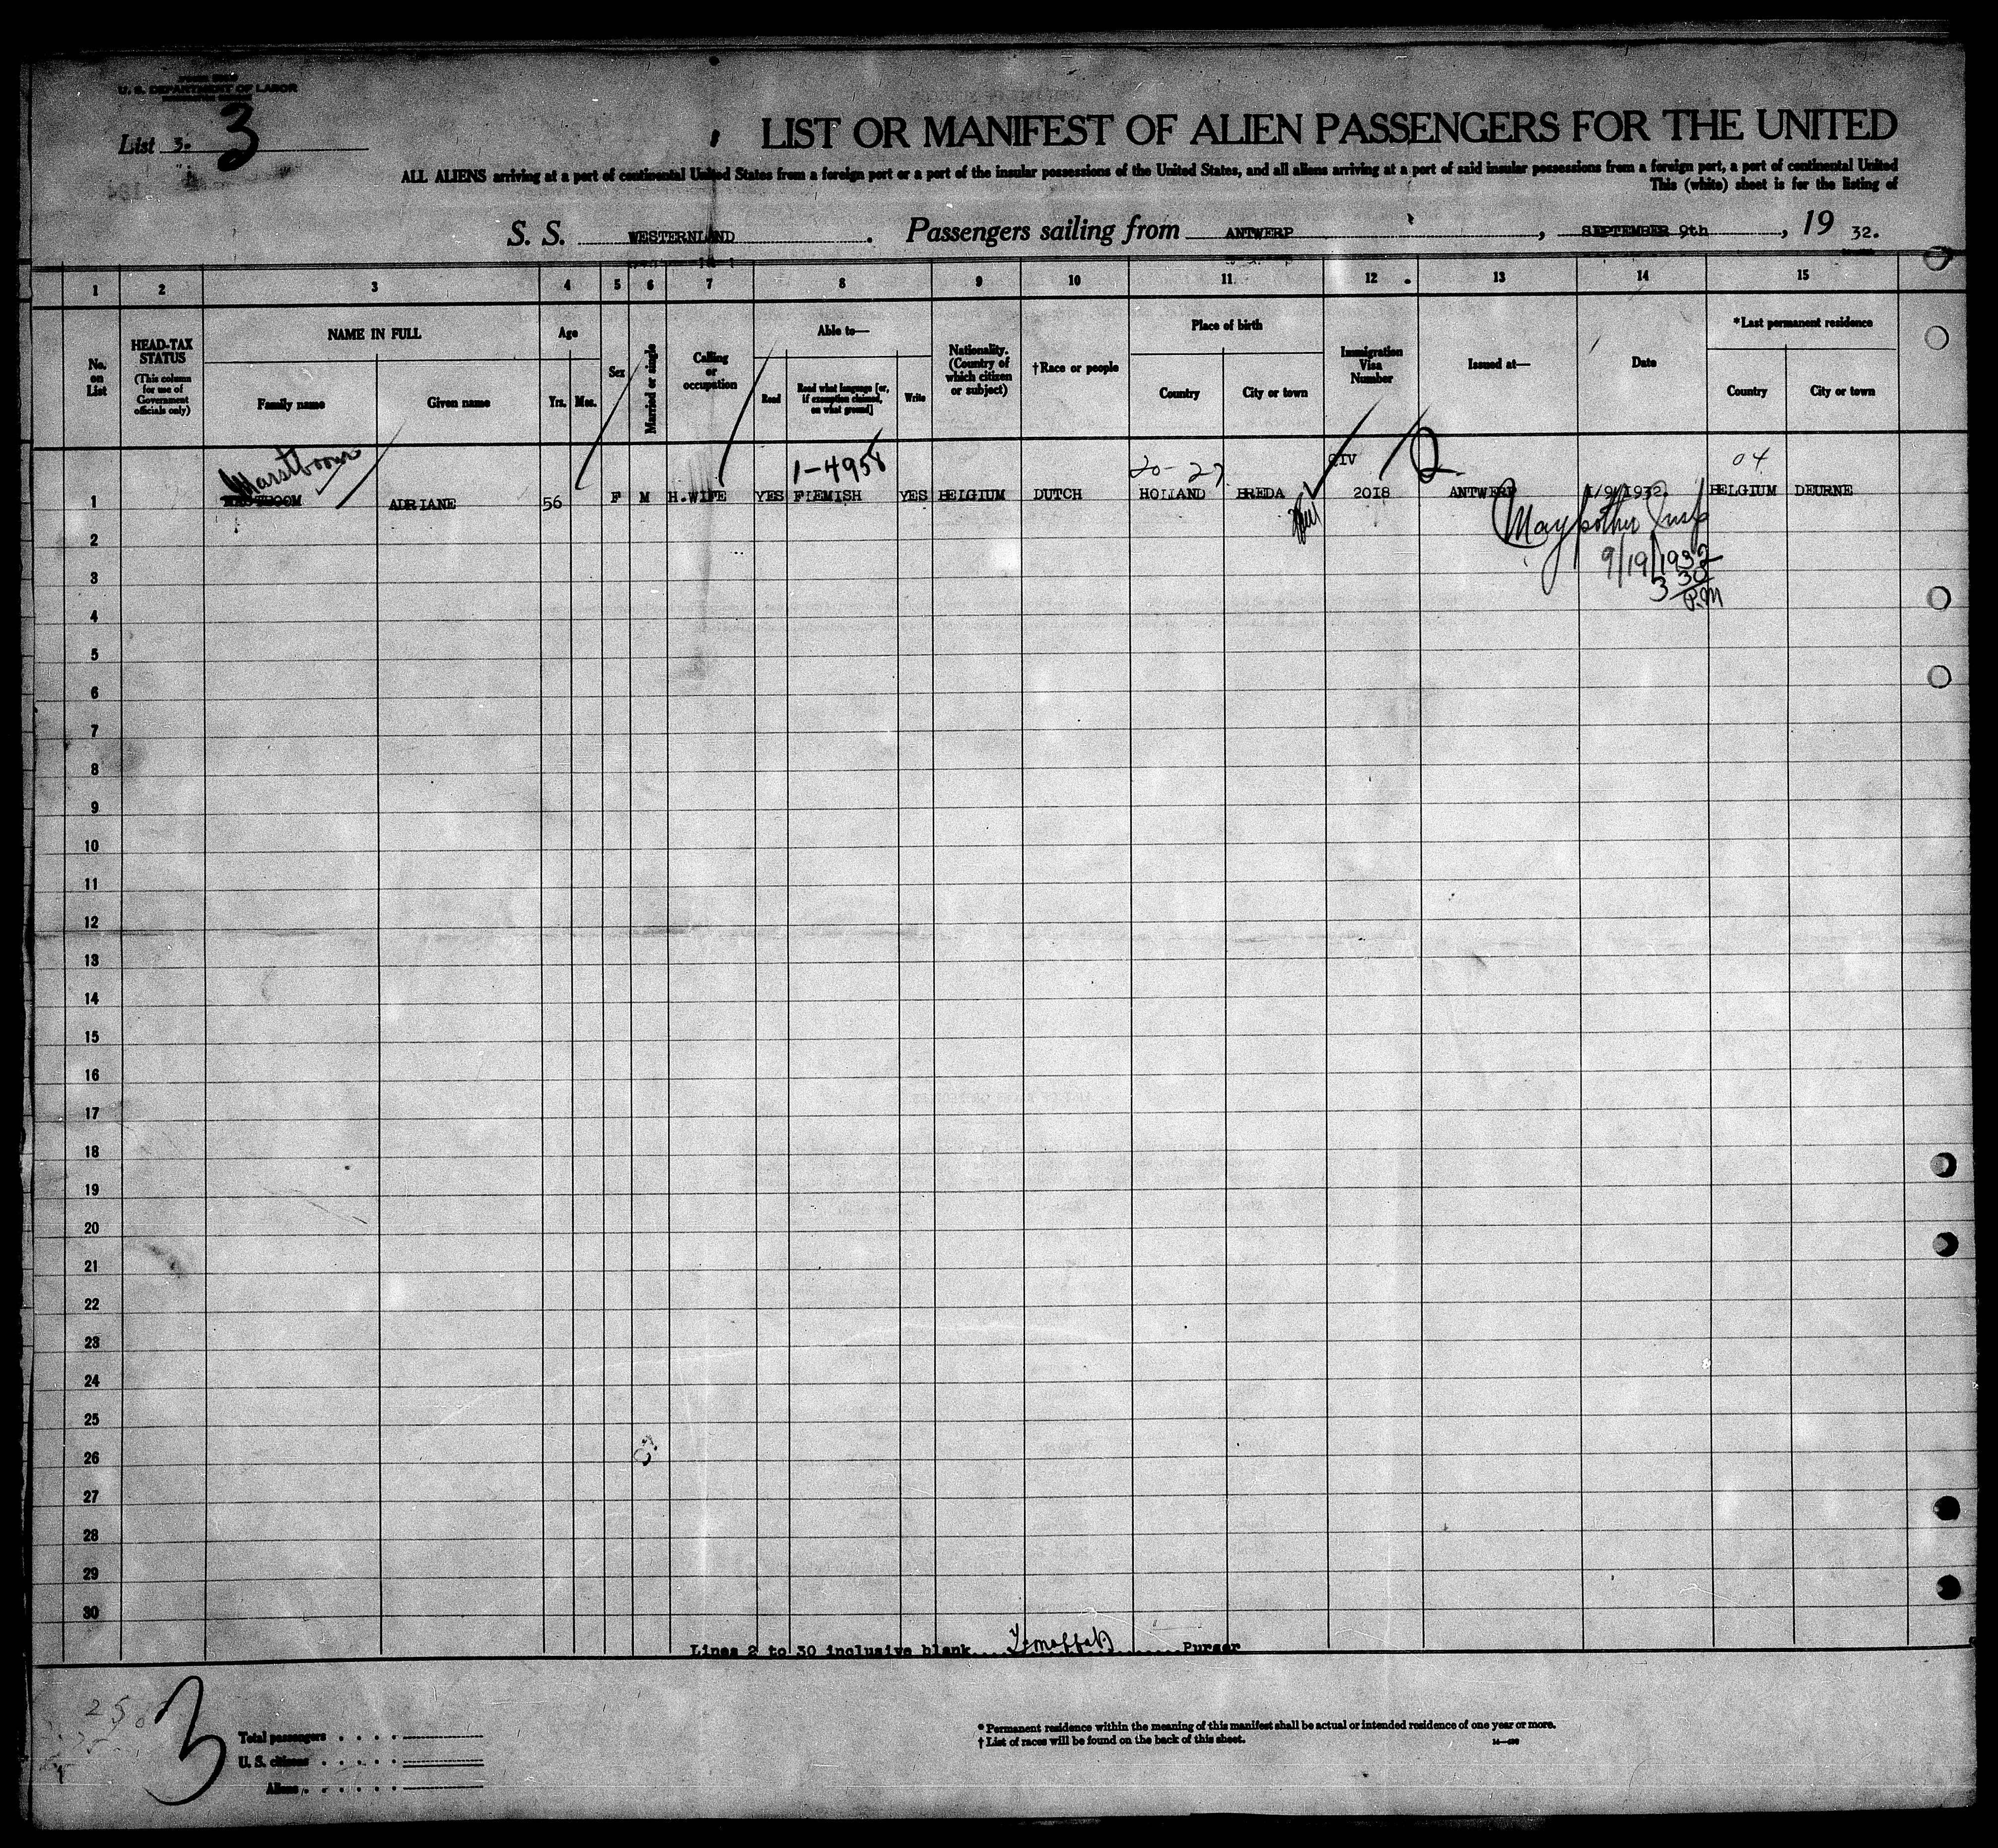 U. S. DEPARTMENT OF LABOR
List 3. 3
LIST OR MANIFEST OF ALIEN PASSENGERS FOR THE UNITED
ALL ALIENS arriving at a port of continental United States from a foreign port or a port of the insular possessions of the United States, and all aliens arriving at a port of said insular possessions from a foreign port, a port of continental United
This (white) sheet is for the listing of
S. S. WESTERNLAND. Passengers sailing from ANTWERP, SEPTEMBER 9th, 19 32.
1 2 3 4 5 6 7 8 9 10 11 12 13 14 15
No. on List
HEAD-TAX STATUS
(This column for use of Government officials only)
NAME IN FULL
Family name
Given name
Age
Yrs. Mos.
Sex
Married or single
Calling or occupation
Able to—
Read
Read what language [or, if exemption claimed, on what ground]
Write
Nationality. (Country of which citizen or subject)
†Race or people
Place of birth
Country
City or town
Immigration Visa Number
Issued at—
Date
*Last permanent residence
Country
City or town
Marstboom 1-4958 20-27 QIV 04
1 ADRIANE 56 F M H.WIFE YES FLEMISH YES BELGIUM DUTCH HOLLAND BREDA 2018 ANTWERP 1/9/1932. BELGIUM DEURNE
Maypother Insp
9/19/1932
3 30 P.M
2
3
4
5
6
7
8
9
10
11
12
13
14
15
16
17
18
19
20
21
22
23
24
25
26
27
28
29
30
Lines 2 to 30 inclusive blank Purser
3
Total passengers
U. S. citizens
Aliens
* Permanent residence within the meaning of this manifest shall be actual or intended residence of one year or more.
† List of races will be found on the back of this sheet.